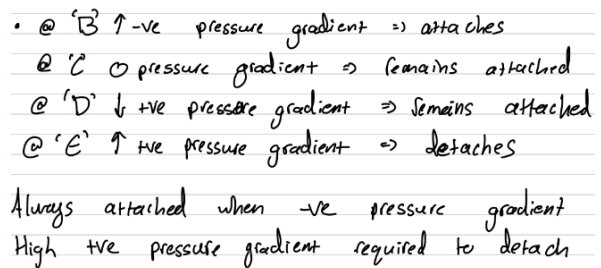 • @ 'B' ↑ -ve pressure gradient => attaches
@ 'C' 0 pressure gradient => remains attached
@ 'D' ↓ +ve pressure gradient => remains attached
@ 'E' ↑ +ve pressure gradient => detaches
Always attached when -ve pressure gradient
High +ve pressure gradient required to detach